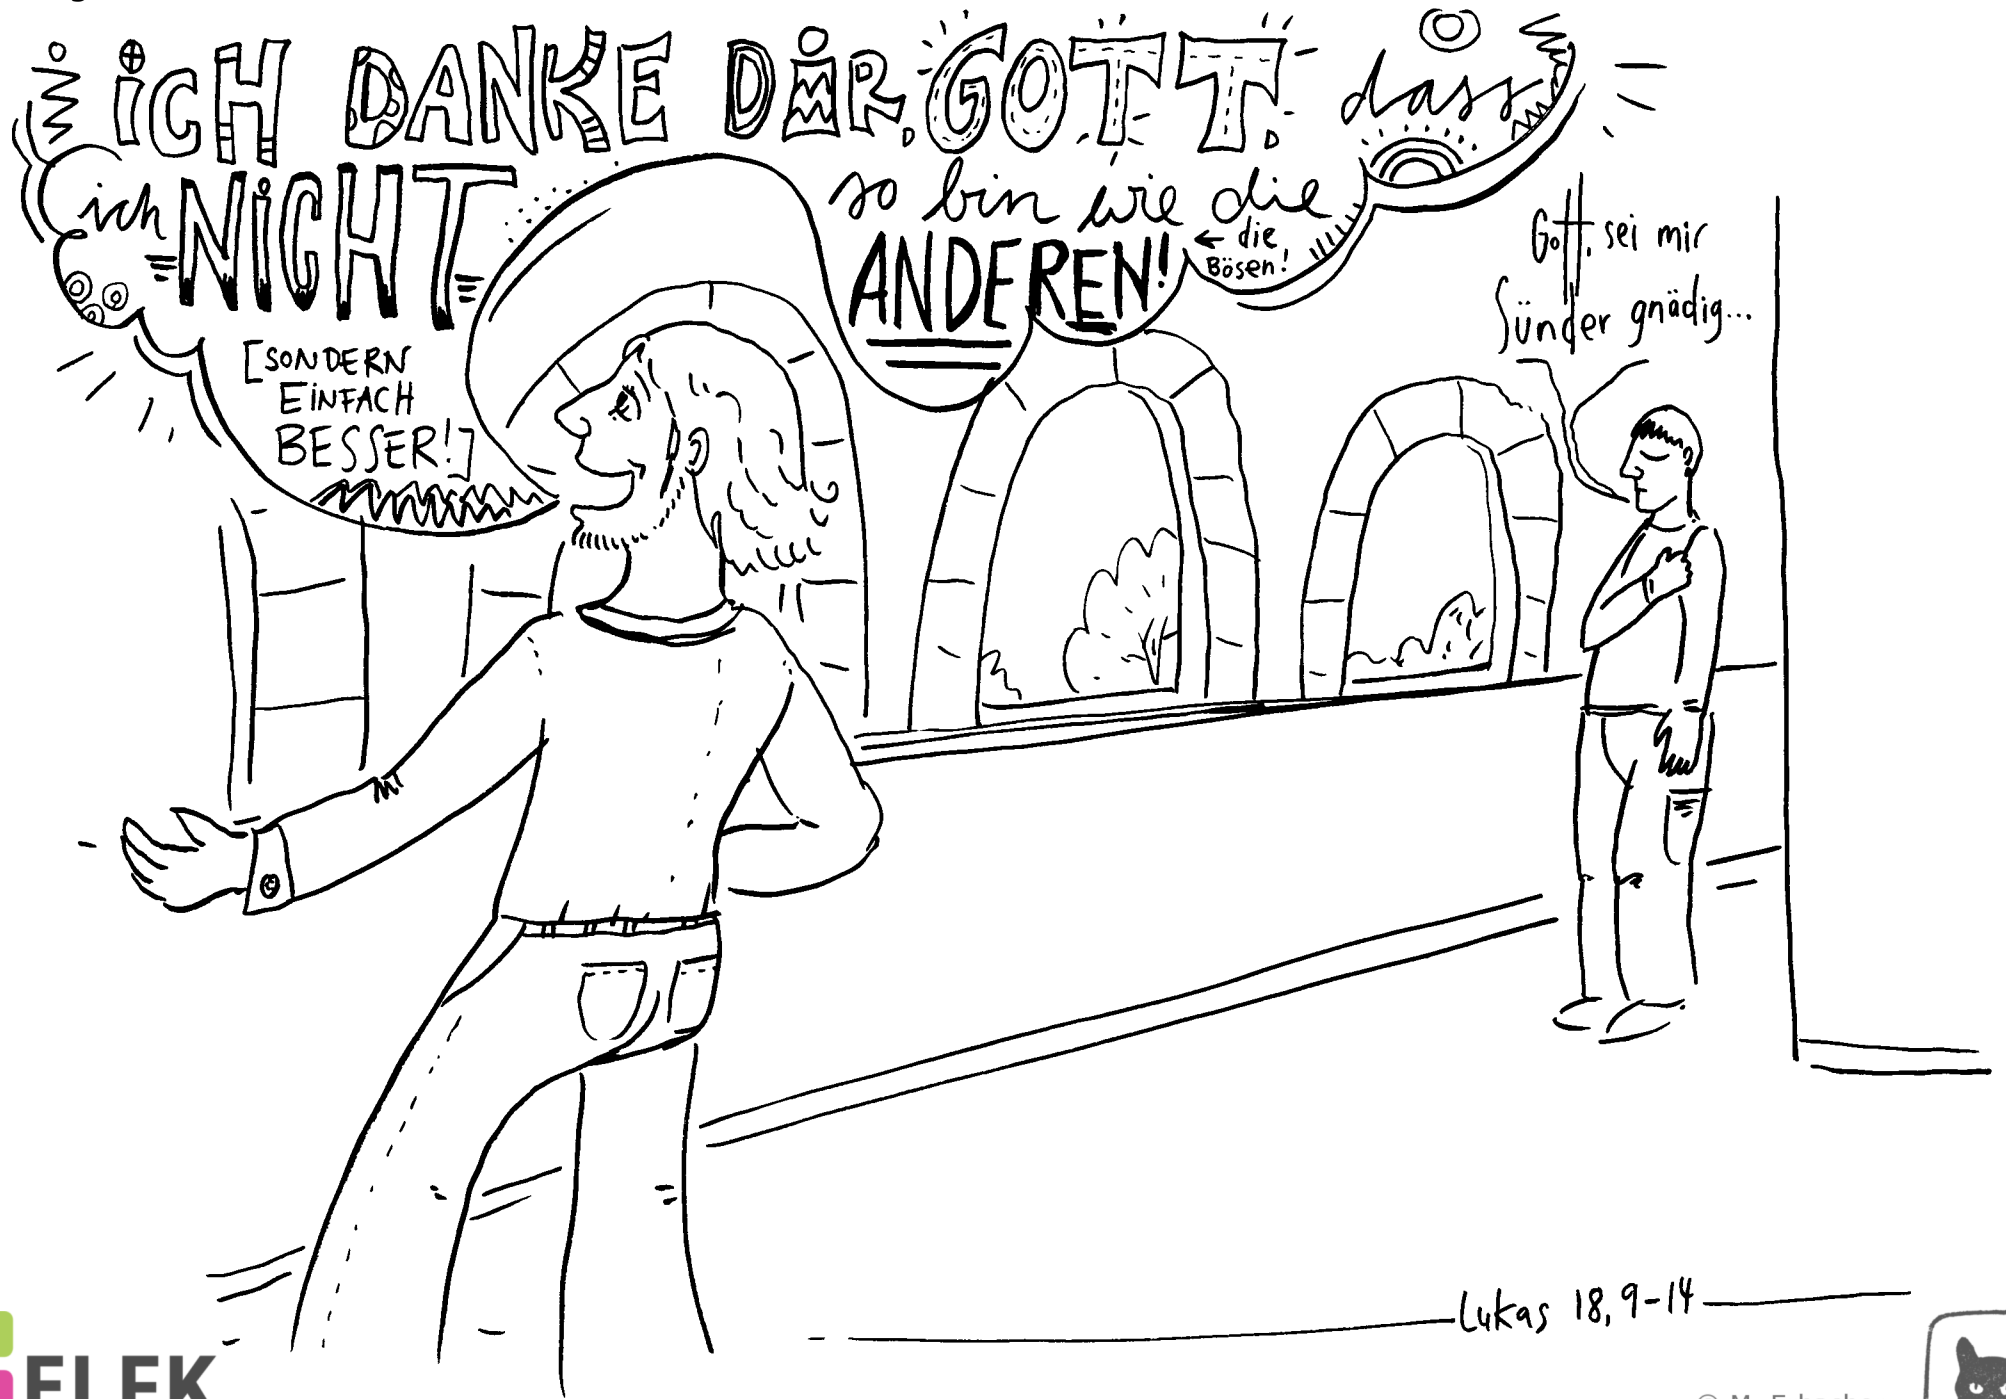 iCH DANKE DiR, GOTT, dass
ich NiCHT so bin wie die
ANDEREN! ← die
BÖSEN!
[SONDERN
EiNFACH
BESSER!]
Gott, sei mir
Sünder gnädig...
Lukas 18, 9-14